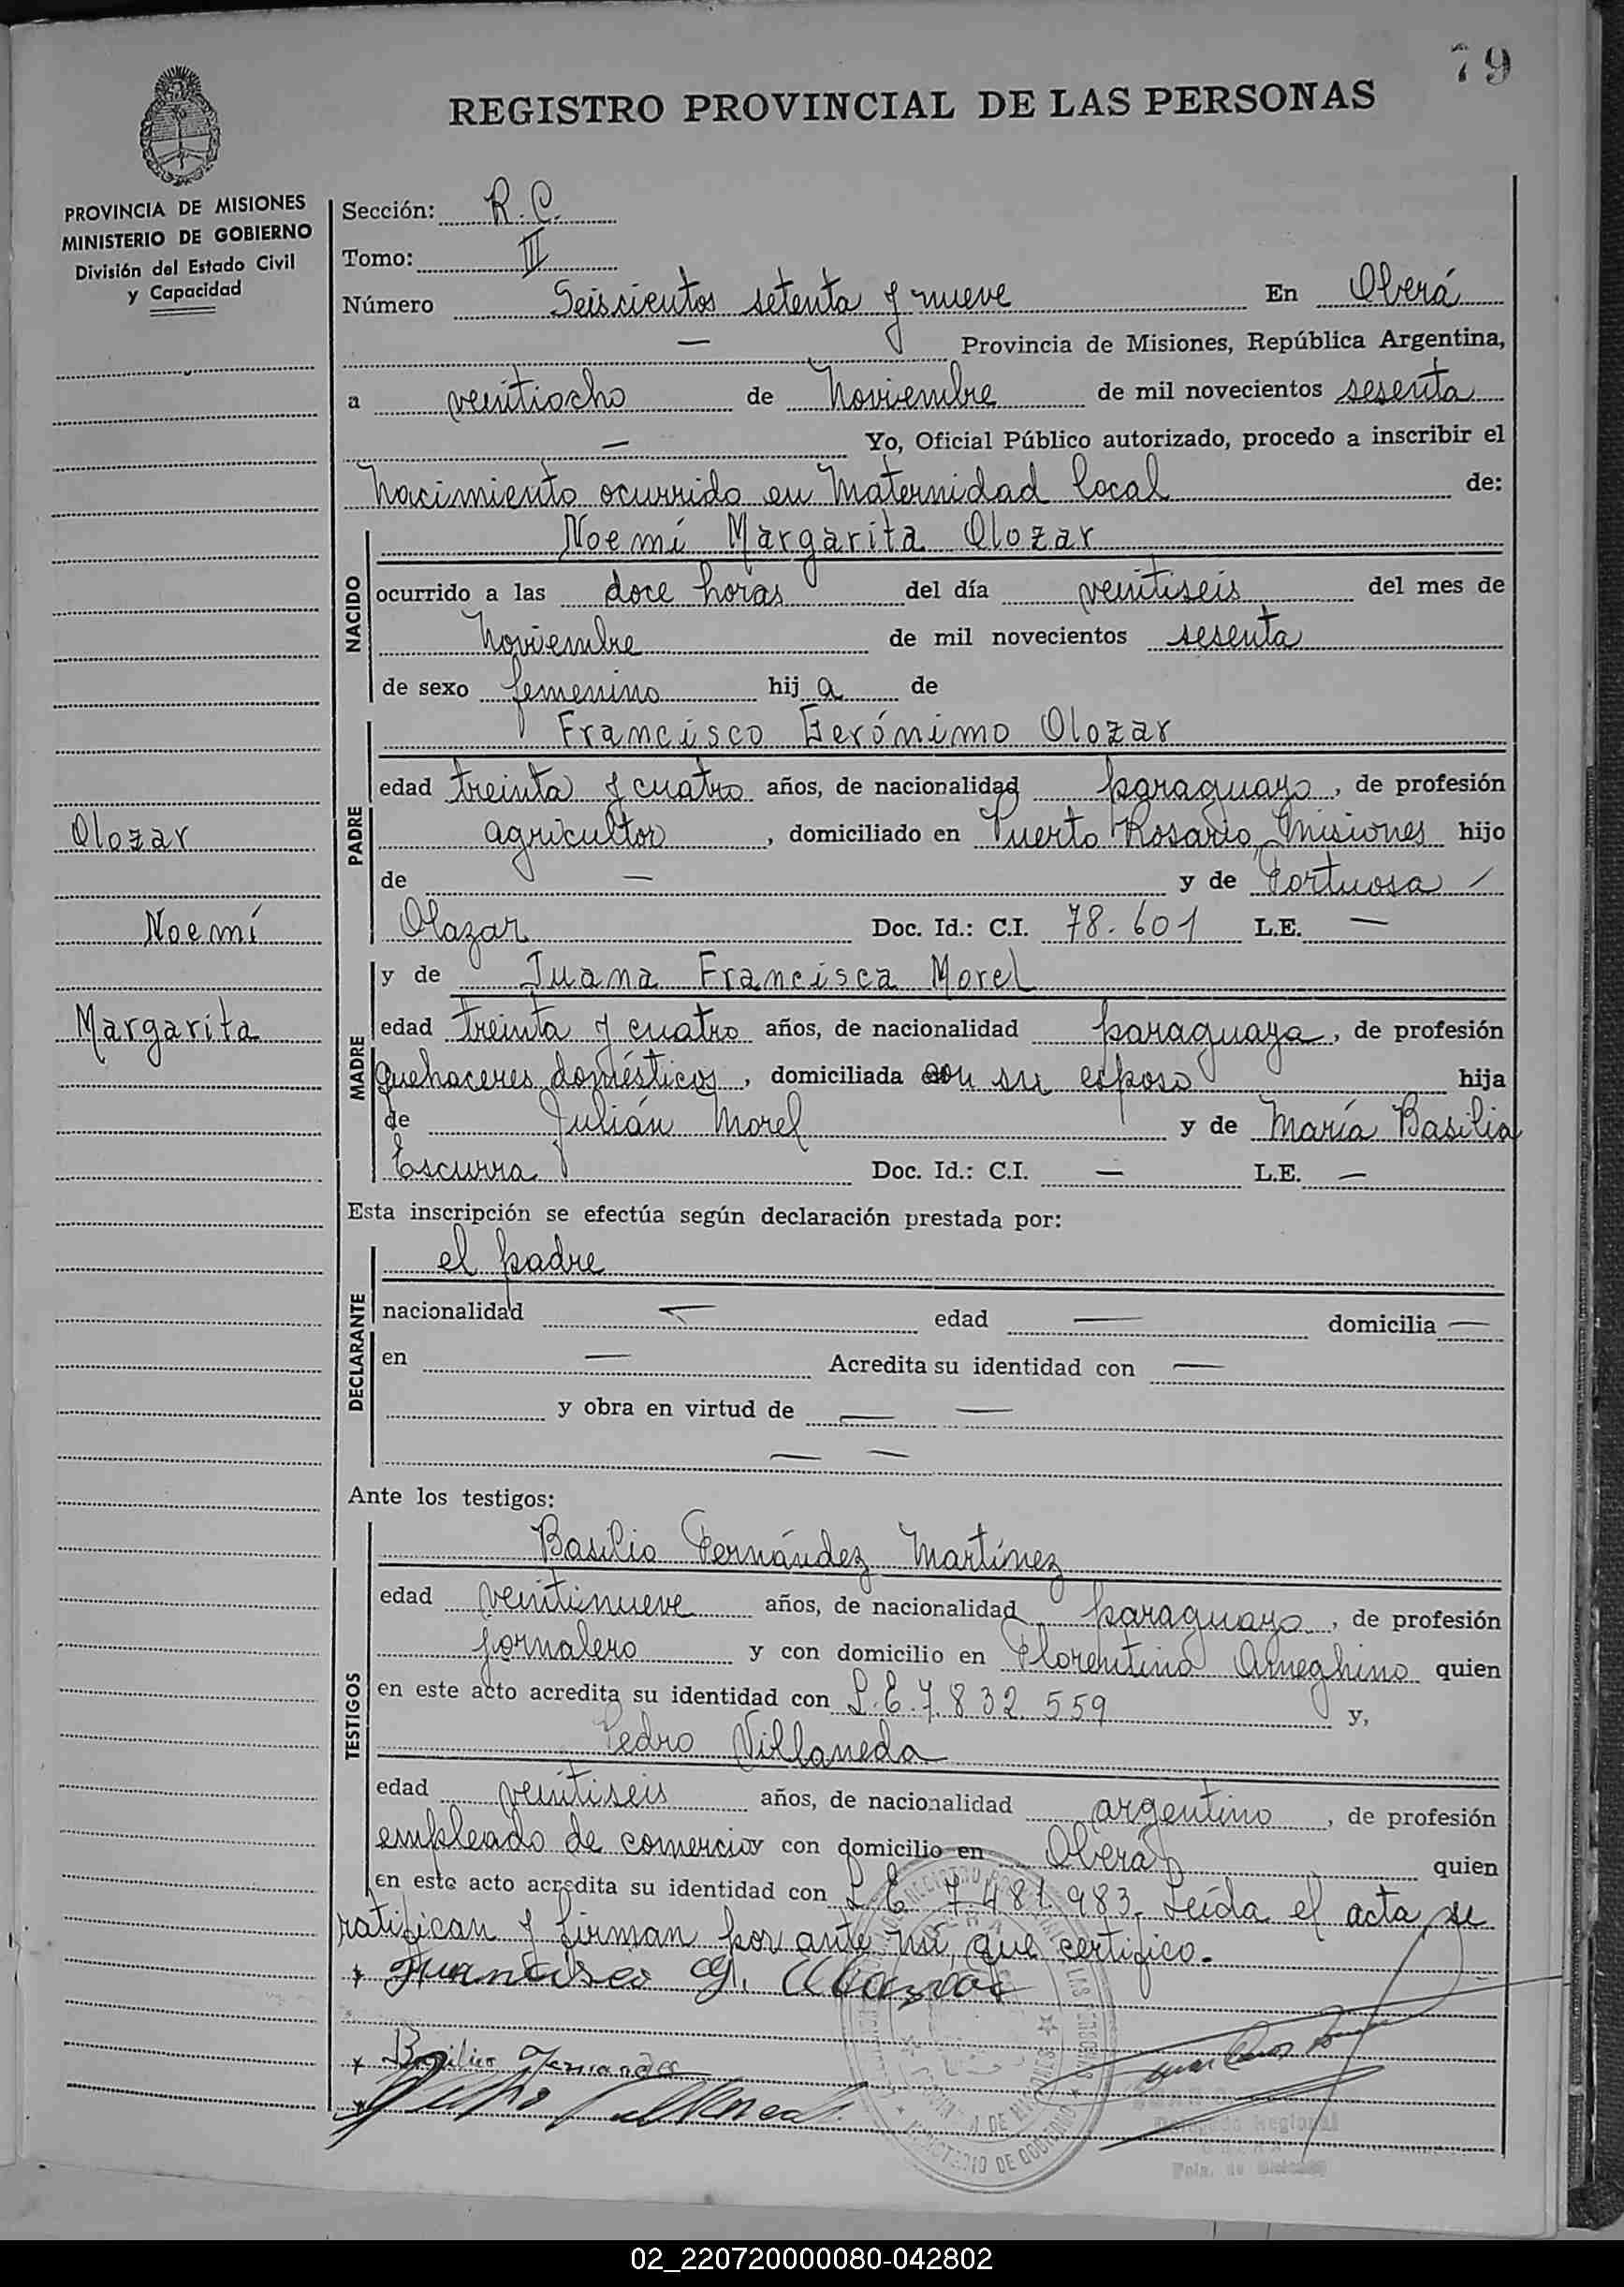 79
REGISTRO PROVINCIAL DE LAS PERSONAS
PROVINCIA DE MISIONES
MINISTERIO DE GOBIERNO
División del Estado Civil
y Capacidad
Sección: R. C.
Tomo: III
Número Seiscientos setenta y nueve En Oberá
— Provincia de Misiones, República Argentina,
a veintiocho de Noviembre de mil novecientos sesenta
— Yo, Oficial Público autorizado, procedo a inscribir el
Nacimiento ocurrido en Maternidad local de:
NACIDO
Noemí Margarita Olozar
ocurrido a las doce horas del día veintiseis del mes de
Noviembre de mil novecientos sesenta
de sexo femenino hij a de
PADRE
Francisco Gerónimo Olozar
edad treinta y cuatro años, de nacionalidad paraguayo, de profesión
agricultor, domiciliado en Puerto Rosario, Misiones hijo
de — y de Tortuosa —
Olazar Doc. Id.: C.I. 78.601 L.E. —
Olozar
Noemí
Margarita
MADRE
y de Juana Francisca Morel
edad treinta y cuatro años, de nacionalidad paraguaya, de profesión
Quehaceres domésticos, domiciliada con su esposo hija
de Julián Morel y de María Basilia
Escurra Doc. Id.: C.I. — L.E. —
Esta inscripción se efectúa según declaración prestada por:
DECLARANTE
el padre
nacionalidad — edad — domicilia —
en — Acredita su identidad con —
y obra en virtud de — —
— —
Ante los testigos:
TESTIGOS
Basilio Fernández Martínez
edad veintinueve años, de nacionalidad paraguayo, de profesión
jornalero y con domicilio en Florentino Ameghino quien
en este acto acredita su identidad con L.E. 7.832.559 y,
Pedro Villaneda
edad veintiseis años, de nacionalidad argentino, de profesión
empleado de comercio y con domicilio en Oberá quien
en este acto acredita su identidad con L.E. 7.481.983. Leída el acta, se
ratifican y firman por ante mí, que certifico.
Francisco G. Olazar
Basilio Fernandez
Delegado Regional
PROVINCIA DE MISIONES
MINISTERIO DE GOBIERNO
02_220720000080-042802